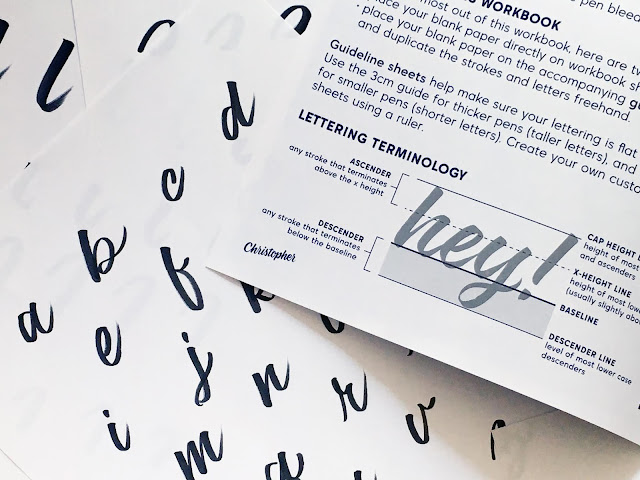 pen bleed
WORKBOOK
most out of this workbook, here are
place your blank paper directly on workbook
place your blank paper on the accompanying
and duplicate the strokes and letters freehand.
Guideline sheets help make sure your lettering is flat
Use the 3cm guide for thicker pens (taller letters), and
for smaller pens (shorter letters). Create your own
sheets using a ruler.
LETTERING TERMINOLOGY
ASCENDER
any stroke that terminates
above the x height
DESCENDER
any stroke that terminates
below the baseline
Christopher
hey!
CAP HEIGHT
height of most
and ascenders
X-HEIGHT LINE
height of most
(usually slightly
BASELINE
DESCENDER LINE
level of most lower case
descenders
d
c
b
f
k
a
e
j
n
r
v
i
m
q